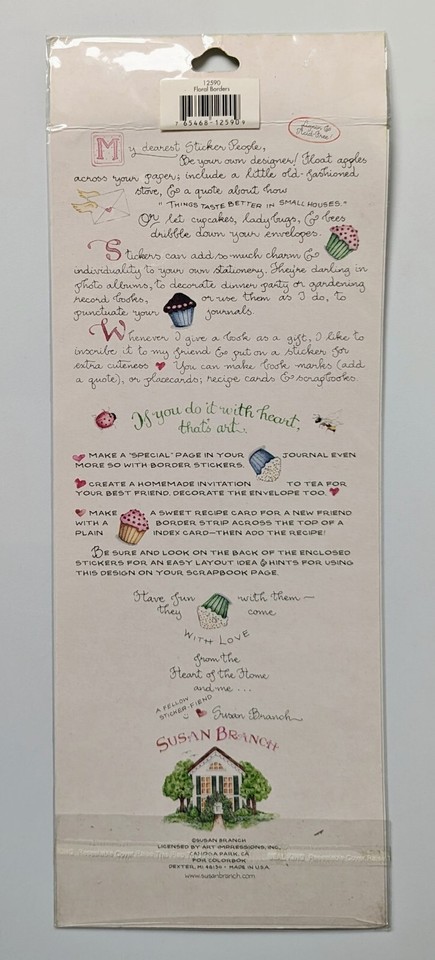 12590
Floral Borders
7 65468 12590 9
Lignin &
Acid-Free
My dearest Sticker People,
Be your own designer! Float apples
across your pages; include a little old-fashioned
stove, & a quote about how
"THINGS TASTE BETTER IN SMALL HOUSES."
Or let cupcakes, ladybugs, & bees
dribble down your envelopes.
Stickers can add so much charm &
individuality to your own stationery. They're darling in
photo albums, to decorate dinner party or gardening
record books, or use them as I do, to
punctuate your journals.
Whenever I give a book as a gift, I like to
inscribe it to my friend & put on a sticker for
extra cuteness ♥ You can make book marks (add
a quote), or placecards; recipe cards & scrapbooks.
If you do it with heart,
that's art.
♥ MAKE A "SPECIAL" PAGE IN YOUR JOURNAL EVEN
MORE SO WITH BORDER STICKERS.
♥ CREATE A HOMEMADE INVITATION TO TEA FOR
YOUR BEST FRIEND. DECORATE THE ENVELOPE TOO. ♥
♥ MAKE A SWEET RECIPE CARD FOR A NEW FRIEND
WITH A BORDER STRIP ACROSS THE TOP OF A
PLAIN INDEX CARD—THEN ADD THE RECIPE!
BE SURE AND LOOK ON THE BACK OF THE ENCLOSED
STICKERS FOR AN EASY LAYOUT IDEA & HINTS FOR USING
THIS DESIGN ON YOUR SCRAPBOOK PAGE.
Have fun with them—
they come
WITH LOVE
from the
Heart of the Home
and me ...
A FELLOW
STICKER-FIEND
♥ Susan Branch
SUSAN BRANCH
©SUSAN BRANCH
LICENSED BY ART IMPRESSIONS, INC.
CANOGA PARK, CA
FOR COLORBOK
DEXTER, MI 48130 - MADE IN U.S.A.
www.susanbranch.com